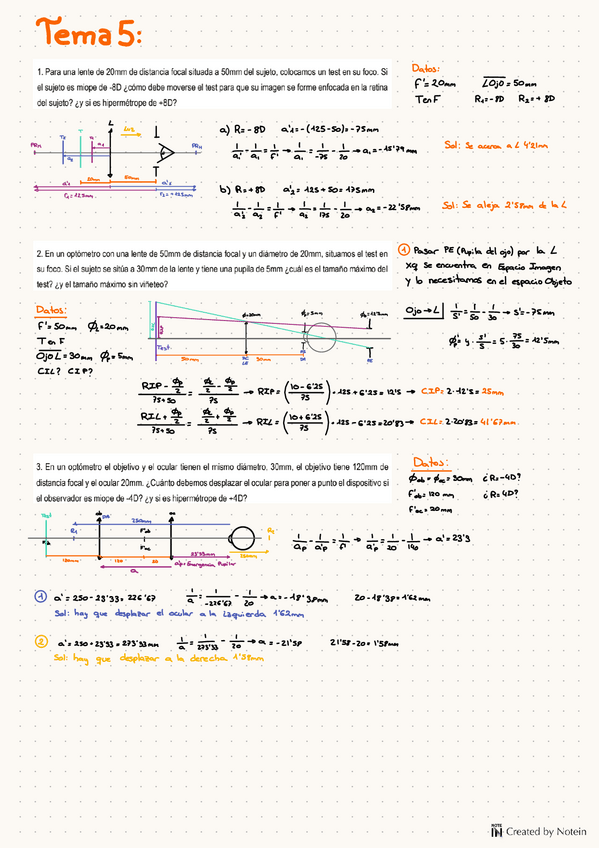 Tema 5:
1. Para una lente de 20mm de distancia focal situada a 50mm del sujeto, colocamos un test en su foco. Si
el sujeto es miope de -8D ¿cómo debe moverse el test para que su imagen se forme enfocada en la retina
del sujeto? ¿y si es hipermétrope de +8D?
Datos:
f' = 20mm LOjo = 50mm
T en F R₁ = -8D R₂ = +8D
a) R = -8D a'₁ = -(125-50) = -75mm
1/a'₁ - 1/a₁ = 1/f' → 1/a₁ = 1/-75 - 1/20 → a₁ = -15'79 mm
Sol: Se acerca a L 4'21mm
b) R = +8D a'₂ = 125+50 = 175mm
1/a'₂ - 1/a₂ = 1/f' → 1/a₂ = 1/175 - 1/20 → a₂ = -22'58mm
Sol: Se aleja 2'58mm de la L
2. En un optómetro con una lente de 50mm de distancia focal y un diámetro de 20mm, situamos el test en
su foco. Si el sujeto se sitúa a 30mm de la lente y tiene una pupila de 5mm ¿cuál es el tamaño máximo del
test? ¿y el tamaño máximo sin viñeteo?
1 Pasar PE (Pupila del ojo) por la L
xq se encuentra en Espacio Imagen
y lo necesitamos en el espacio Objeto
Datos:
f' = 50mm ϕL = 20mm
T en F
OjoL = 30mm ϕp = 5mm
CIL? CIP?
Test
50mm 30mm
Ojo → L 1/s' = 1/50 - 1/30 → s' = -75mm
ϕ'p = y · s'/s = 5 · 75/30 = 12'5mm
RIP - ϕp/2 / 75+50 = ϕL/2 - ϕp/2 / 75 → RIP = (10-6'25 / 75) · 125 + 6'25 = 12'5 → CIP = 2·12'5 = 25mm
RIL + ϕp/2 / 75+50 = ϕL/2 + ϕp/2 / 75 → RIL = (10+6'25 / 75) · 125 - 6'25 = 20'83 → CIL = 2·20'83 = 41'67mm
3. En un optómetro el objetivo y el ocular tienen el mismo diámetro, 30mm, el objetivo tiene 120mm de
distancia focal y el ocular 20mm. ¿Cuánto debemos desplazar el ocular para poner a punto el dispositivo si
el observador es miope de -4D? ¿y si es hipermétrope de +4D?
Datos:
ϕob = ϕoc = 30mm ¿R = -4D?
f'ob = 120 mm ¿R = 4D?
f'oc = 20mm
Test
250mm
120mm 120 20 23'33mm
a'p = Emergencia Pupilar
1/ap - 1/a'p = 1/f' → 1/a'p = 1/20 - 1/140 → a' = 23'3
1 a' = 250 - 23'33 = 226'67 1/a = 1/-226'67 - 1/20 → a = -18'38mm 20 - 18'38 = 1'62mm
Sol: hay que desplazar el ocular a la izquierda 1'62mm
2 a' = 250 + 23'33 = 273'33mm 1/a = 1/273'33 - 1/20 → a = -21'58 21'58 - 20 = 1'58mm
Sol: hay que desplazar a la derecha 1'58mm
NOTE IN Created by Notein